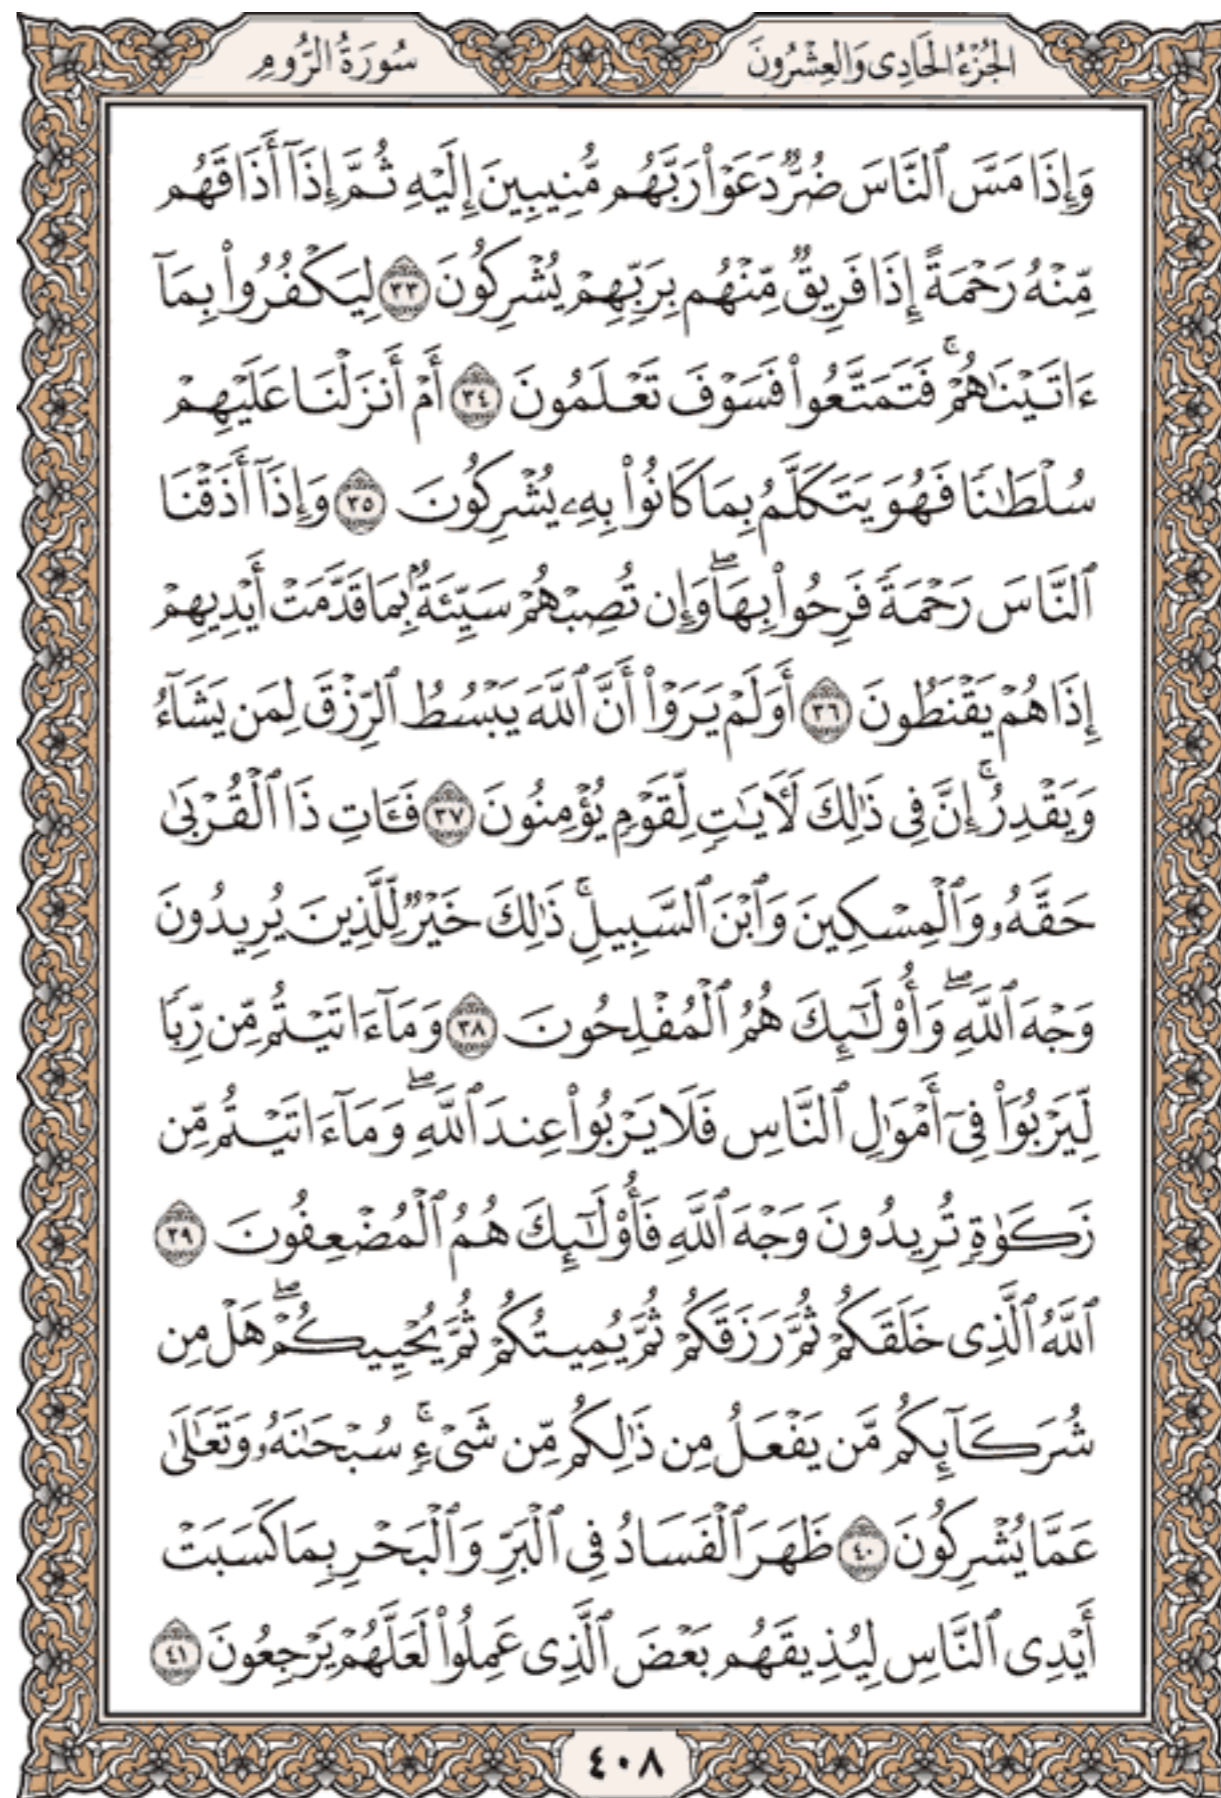 الجُزْءُ الحَادِى وَالعِشْرُونَ
سُورَةُ الرُّومِ
وَإِذَا مَسَّ ٱلنَّاسَ ضُرٌّ دَعَوْا۟ رَبَّهُم مُّنِيبِينَ إِلَيْهِ ثُمَّ إِذَآ أَذَاقَهُم
مِّنْهُ رَحْمَةً إِذَا فَرِيقٌ مِّنْهُم بِرَبِّهِمْ يُشْرِكُونَ ٣٣ لِيَكْفُرُوا۟ بِمَآ
ءَاتَيْنَٰهُمْ ۚ فَتَمَتَّعُوا۟ فَسَوْفَ تَعْلَمُونَ ٣٤ أَمْ أَنزَلْنَا عَلَيْهِمْ
سُلْطَٰنًا فَهُوَ يَتَكَلَّمُ بِمَا كَانُوا۟ بِهِۦ يُشْرِكُونَ ٣٥ وَإِذَآ أَذَقْنَا
ٱلنَّاسَ رَحْمَةً فَرِحُوا۟ بِهَا ۖ وَإِن تُصِبْهُمْ سَيِّئَةٌۢ بِمَا قَدَّمَتْ أَيْدِيهِمْ
إِذَا هُمْ يَقْنَطُونَ ٣٦ أَوَلَمْ يَرَوْا۟ أَنَّ ٱللَّهَ يَبْسُطُ ٱلرِّزْقَ لِمَن يَشَآءُ
وَيَقْدِرُ ۚ إِنَّ فِى ذَٰلِكَ لَـَٔايَٰتٍ لِّقَوْمٍ يُؤْمِنُونَ ٣٧ فَـَٔاتِ ذَا ٱلْقُرْبَىٰ
حَقَّهُۥ وَٱلْمِسْكِينَ وَٱبْنَ ٱلسَّبِيلِ ۚ ذَٰلِكَ خَيْرٌ لِّلَّذِينَ يُرِيدُونَ
وَجْهَ ٱللَّهِ ۖ وَأُو۟لَٰٓئِكَ هُمُ ٱلْمُفْلِحُونَ ٣٨ وَمَآ ءَاتَيْتُم مِّن رِّبًا
لِّيَرْبُوَا۟ فِىٓ أَمْوَٰلِ ٱلنَّاسِ فَلَا يَرْبُوا۟ عِندَ ٱللَّهِ ۖ وَمَآ ءَاتَيْتُم مِّن
زَكَوٰةٍ تُرِيدُونَ وَجْهَ ٱللَّهِ فَأُو۟لَٰٓئِكَ هُمُ ٱلْمُضْعِفُونَ ٣٩
ٱللَّهُ ٱلَّذِى خَلَقَكُمْ ثُمَّ رَزَقَكُمْ ثُمَّ يُمِيتُكُمْ ثُمَّ يُحْيِيكُمْ ۖ هَلْ مِن
شُرَكَآئِكُم مَّن يَفْعَلُ مِن ذَٰلِكُم مِّن شَىْءٍ ۚ سُبْحَٰنَهُۥ وَتَعَٰلَىٰ
عَمَّا يُشْرِكُونَ ٤٠ ظَهَرَ ٱلْفَسَادُ فِى ٱلْبَرِّ وَٱلْبَحْرِ بِمَا كَسَبَتْ
أَيْدِى ٱلنَّاسِ لِيُذِيقَهُم بَعْضَ ٱلَّذِى عَمِلُوا۟ لَعَلَّهُمْ يَرْجِعُونَ ٤١
٤٠٨